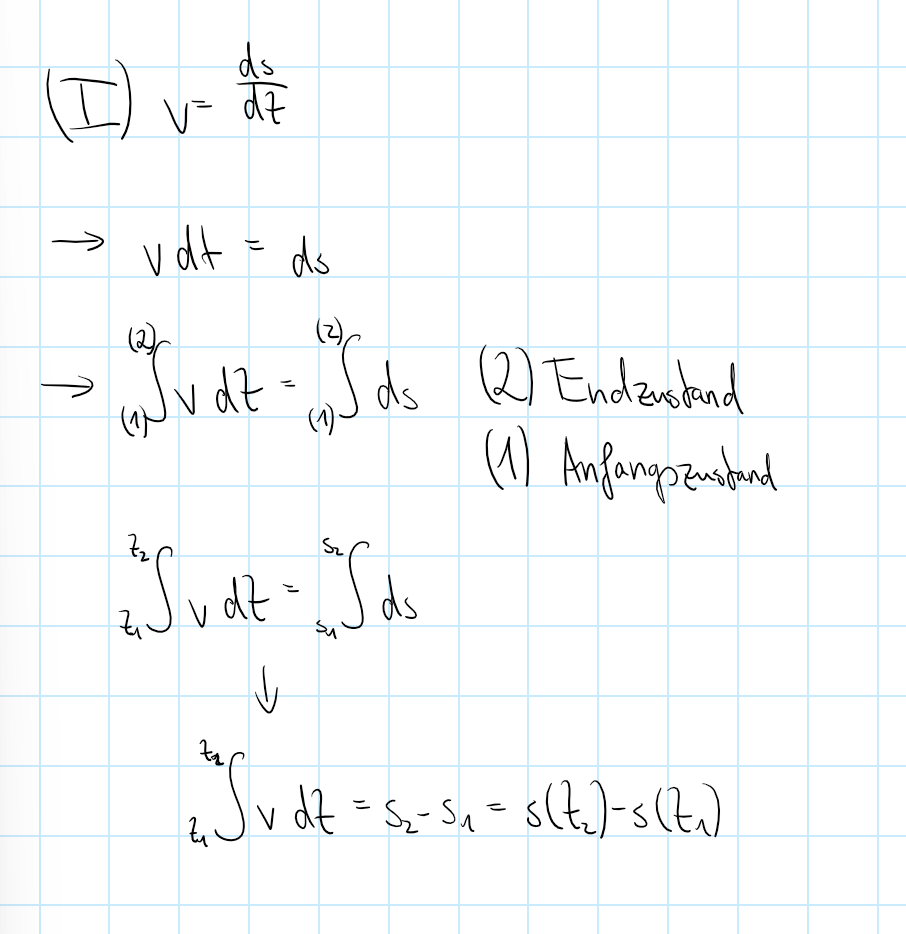 (I) v = ds/dt
→ v dt = ds
→ ∫₍₁₎⁽²⁾ v dt = ∫₍₁₎⁽²⁾ ds (2) Endzustand
(1) Anfangszustand
∫_{t₁}^{t₂} v dt = ∫_{s₁}^{s₂} ds
↓
∫_{t₁}^{t₂} v dt = s₂ - s₁ = s(t₂) - s(t₁)